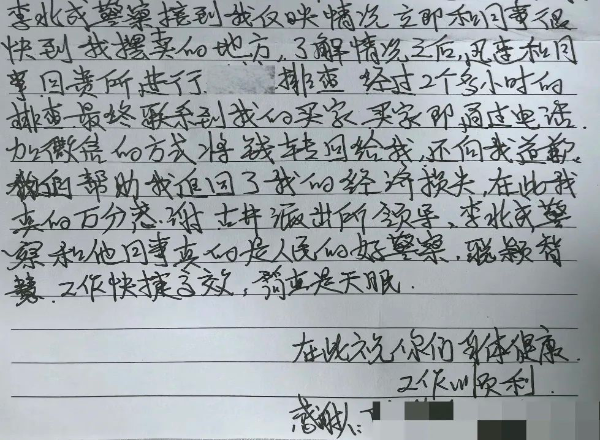 李北成警察接到我反映情况立即和同事很
快到我摆卖的地方,了解情况之后,迅速和同
事回贵所进行 排查 经过2个多小时的
排查最终联系到我的买家,买家即通过电话
加微信的方式将钱转回给我,还向我道歉,
他们帮助我追回了我的经济损失,在此我
真的万分感谢古井派出所领导、李北成警
察和他同事真的是人民的好警察,聪颖智
慧,工作快捷高效,简直是天眼.
在此祝你们身体健康.
工作顺利.
感谢人: